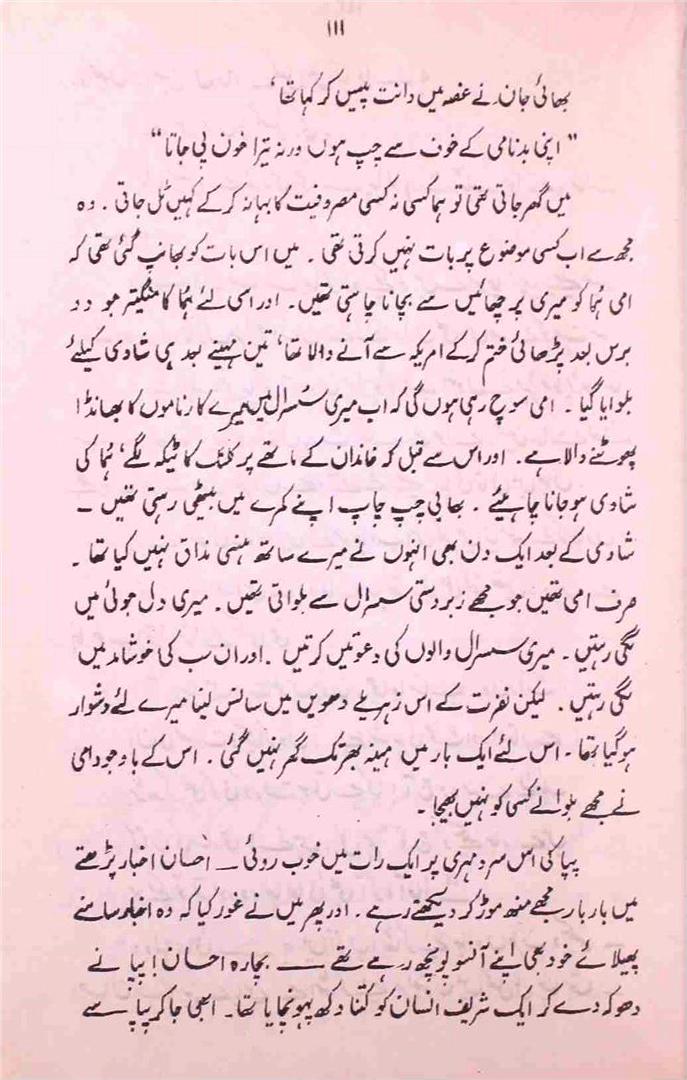 ۱۱۱
بھائی جان نے غصہ میں دانت پیس کر کہا تھا‘
" اپنی بدنامی کے خوف سے چپ ہوں ورنہ تیرا خون پی جاتا "
میں گھر جاتی تھی تو ہما کسی نہ کسی مصروفیت کا بہانہ کر کے کہیں ٹل جاتی ۔ وہ
مجھ سے اب کسی موضوع پر بات نہیں کرتی تھی ۔ میں اس بات کو بھانپ گئی تھی کہ
امی ہُما کو میری پرچھائیں سے بچانا چاہتی تھیں ۔ اور اسی لئے ہُما کا منگیتر جو دو
برس بعد پڑھائی ختم کر کے امریکہ سے آنے والا تھا‘ تین مہینے بعد ہی شادی کیلئے
بلوایا گیا ۔ امی سوچ رہی ہوں گی کہ اب میری سُسرال میں میرے کارناموں کا بھانڈا
پھوٹنے والا ہے ۔ اور اس سے قبل کہ خاندان کے ماتھے پر کلنک کا ٹیکہ لگے‘ ہُما کی
شادی ہو جانا چاہیئے ۔ بھابی چپ چاپ اپنے کمرے میں بیٹھی رہتی تھیں ۔
شادی کے بعد ایک دن بھی انہوں نے میرے ساتھ ہنسی مذاق نہیں کیا تھا ۔
صرف امی تھیں جو مجھے زبردستی سسرال سے بلواتی تھیں ۔ میری دل جوئی میں
لگی رہتیں ۔ میری سسرال والوں کی دعوتیں کرتیں ۔ اور ان سب کی خوشامد میں
لگی رہتیں ۔ لیکن نفرت کے اس زہریلے دھویں میں سانس لینا میرے لئے دشوار
ہو گیا تھا ۔ اس لئے ایک بار میں مہینہ بھر تک گھر نہیں گئی ۔ اس کے باوجود امی
نے مجھے بلوانے کسی کو نہیں بھیجا ۔
پپا کی اس سرد مہری پر ایک رات میں خوب روئی ــ احسان اخبار پڑھتے
میں بار بار مجھے منھ موڑ کر دیکھتے رہے ۔ اور پھر میں نے غور کیا کہ وہ اخبار سامنے
پھیلائے خود بھی اپنے آنسو پونچھ رہے تھے ــــ بچارہ احسان ! پپا نے
دھوکہ دے کر ایک شریف انسان کو کتنا دکھ پہونچایا تھا ۔ ابھی جا کر پپا سے